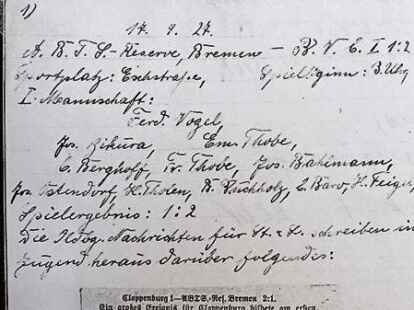 1)
14. 9. 27.
A. B. T. S.-Reserve, Bremen – B. V. C. I 1:2
Sportplatz: Eschstraße, Spielbeginn: 3 Uhr
I. Mannschaft:
Ferd. Vogel,
Jos. Em. Thobe,
C. Berghoff, Fr. Thobe, Jos. Bahlmann,
Jos. Ostendorf, H. Tholen, B. Buchholz, C. Bäro, H. Feiger
Spielergebnis: 1:2
Die Oldbg. Nachrichten für St. u. L. schreiben in
Jugend heraus darüber folgendes:
Cloppenburg 1—ABTS.-Res. Bremen 2:1.
Ein großes Ereignis für Cloppenburg bildete am ersten